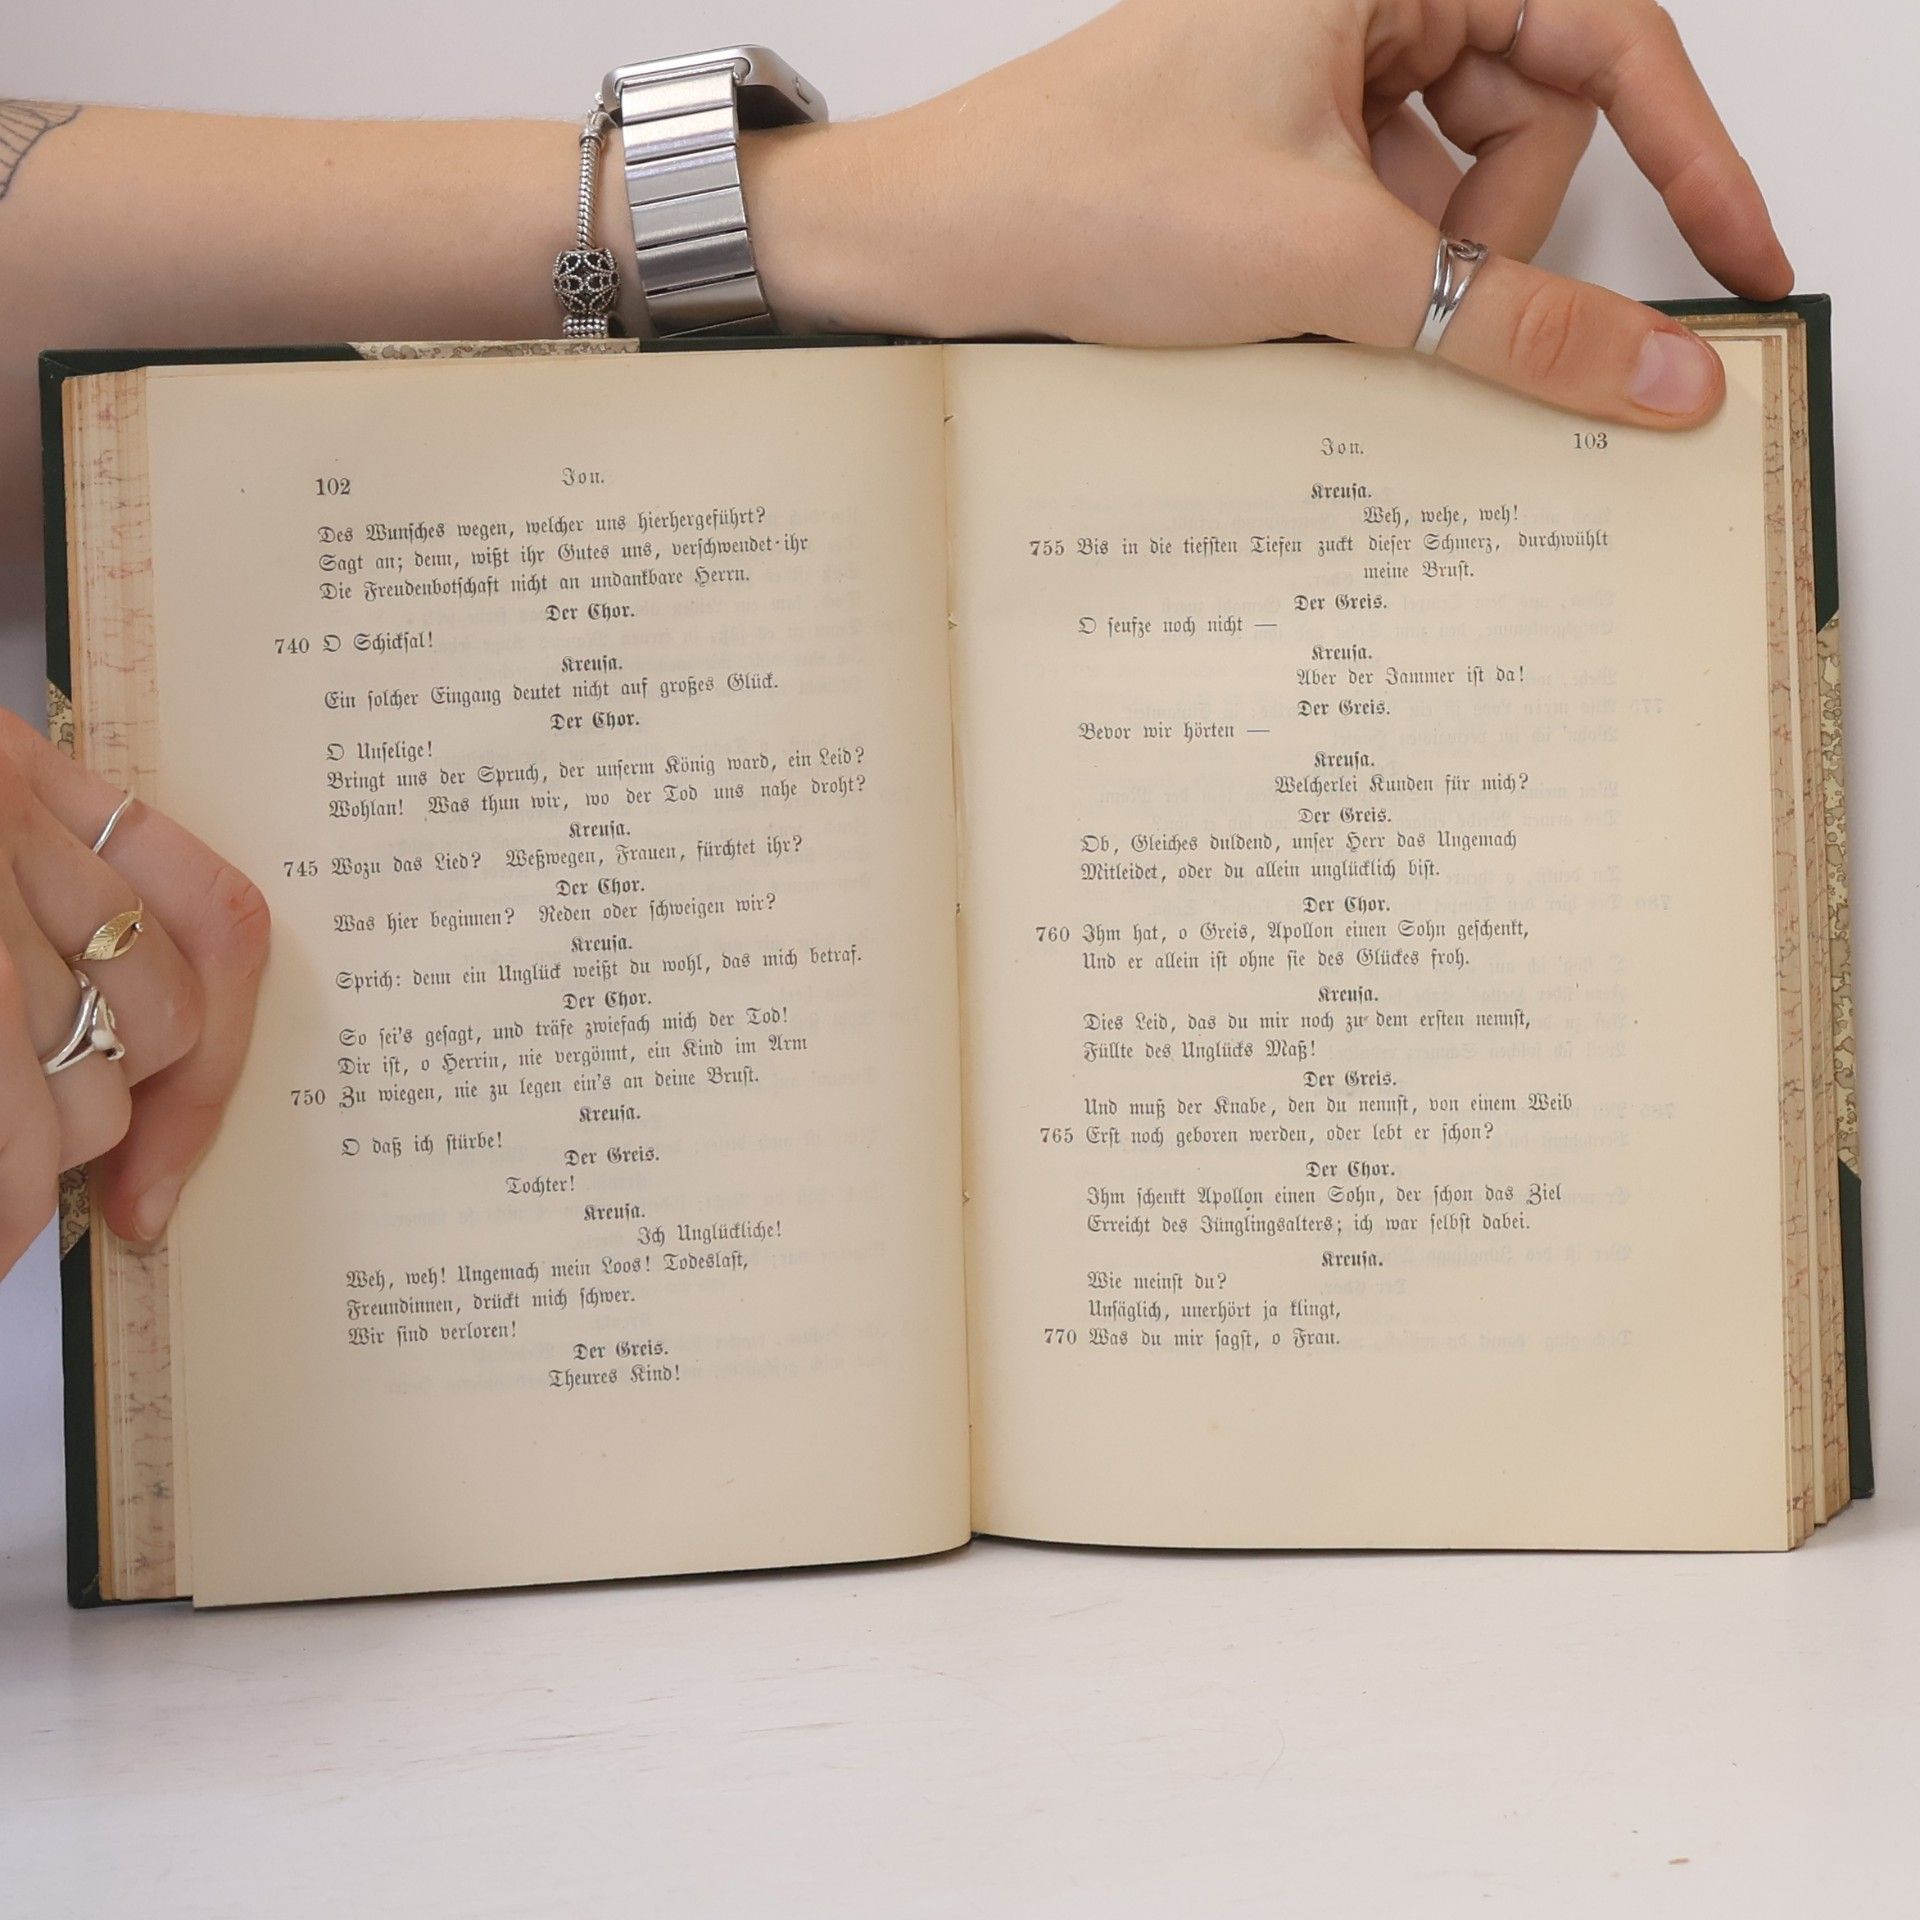 102
Ion.
Des Wunſches wegen, welcher uns hierhergeführt?
Sagt an; denn, wißt ihr Gutes uns, verſchwendet ihr
Die Freudenbotſchaft nicht an undankbare Herrn.
Der Chor.
740 O Schickſal!
Kreuſa.
Ein ſolcher Eingang deutet nicht auf großes Glück.
Der Chor.
O Unſelige!
Bringt uns der Spruch, der unſerm König ward, ein Leid?
Wohlan! Was thun wir, wo der Tod uns nahe droht?
Kreuſa.
745 Wozu das Lied? Weßwegen, Frauen, fürchtet ihr?
Der Chor.
Was hier beginnen? Reden oder ſchweigen wir?
Kreuſa.
Sprich: denn ein Unglück weißt du wohl, das mich betraf.
Der Chor.
So ſei's geſagt, und träfe zwiefach mich der Tod!
Dir iſt, o Herrin, nie vergönnt, ein Kind im Arm
750 Zu wiegen, nie zu legen ein's an deine Bruſt.
Kreuſa.
O daß ich ſtürbe!
Der Greis.
Tochter!
Kreuſa.
Ich Unglückliche!
Weh, weh! Ungemach mein Loos! Todeslaſt,
Freundinnen, drückt mich ſchwer.
Wir ſind verloren!
Der Greis.
Theures Kind!
Ion.
103
Kreuſa.
Weh, wehe, weh!
755 Bis in die tiefſten Tiefen zuckt dieſer Schmerz, durchwühlt
meine Bruſt.
Der Greis.
O ſeufze noch nicht —
Kreuſa.
Aber der Jammer iſt da!
Der Greis.
Bevor wir hörten —
Kreuſa.
Welcherlei Kunden für mich?
Der Greis.
Ob, Gleiches duldend, unſer Herr das Ungemach
Mitleidet, oder du allein unglücklich biſt.
Der Chor.
760 Ihm hat, o Greis, Apollon einen Sohn geſchenkt,
Und er allein iſt ohne ſie des Glückes froh.
Kreuſa.
Dies Leid, das du mir noch zu dem erſten nennſt,
Füllte des Unglücks Maß!
Der Greis.
Und muß der Knabe, den du nennſt, von einem Weib
765 Erſt noch geboren werden, oder lebt er ſchon?
Der Chor.
Ihm ſchenkt Apollon einen Sohn, der ſchon das Ziel
Erreicht des Jünglingsalters; ich war ſelbſt dabei.
Kreuſa.
Wie meinſt du?
Unſäglich, unerhört ja klingt,
770 Was du mir ſagſt, o Frau.